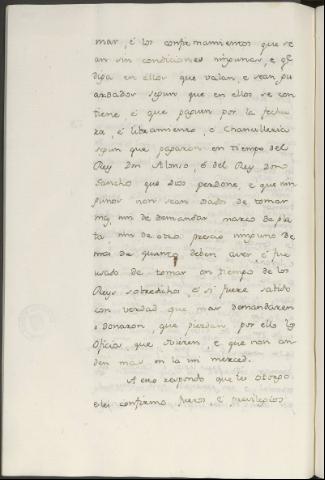 mar, é los confirmamientos que se
an sin condiciones ningunas, e qe
diga en ellos que valan, e sean gu
ardados segun que en ellos se con
tiene, é que paguen por la fechu
ra, é libramiento, é Chancilleria
segun que pagaron en tiempo del
Rey Don Alonso, ó del Rey Don
Sancho que Dios perdone, e que nin
gunos non sean osados de tomar
nin de demandar marco de pla
ta, nin de otro precio ninguno de
mas de quanto deben aver é fue
usado de tomar en tiempo de los
Reys sobredichos, é si fuere sabido
con verdad que mas demandaren
e tomaron que pierdan por ello los
Oficios, que ovieren, e que non an
den mas en la mi merced.
A esto respondo que les otorgo
e les confirmo fueros e previlegios